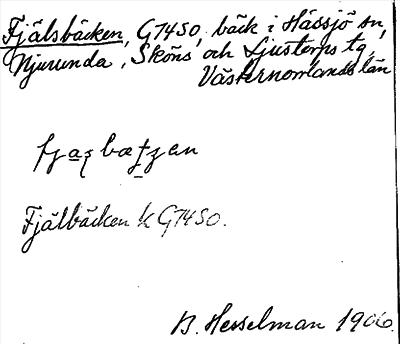 Fjälsbäcken, G7450, bäck i Hässjö sn,
Njurunda, Sköns och Ljustorps tg,
Västernorrlands län
fjäs bætjen
Fjälbäcken k G7450.
B. Hesselman 1906.